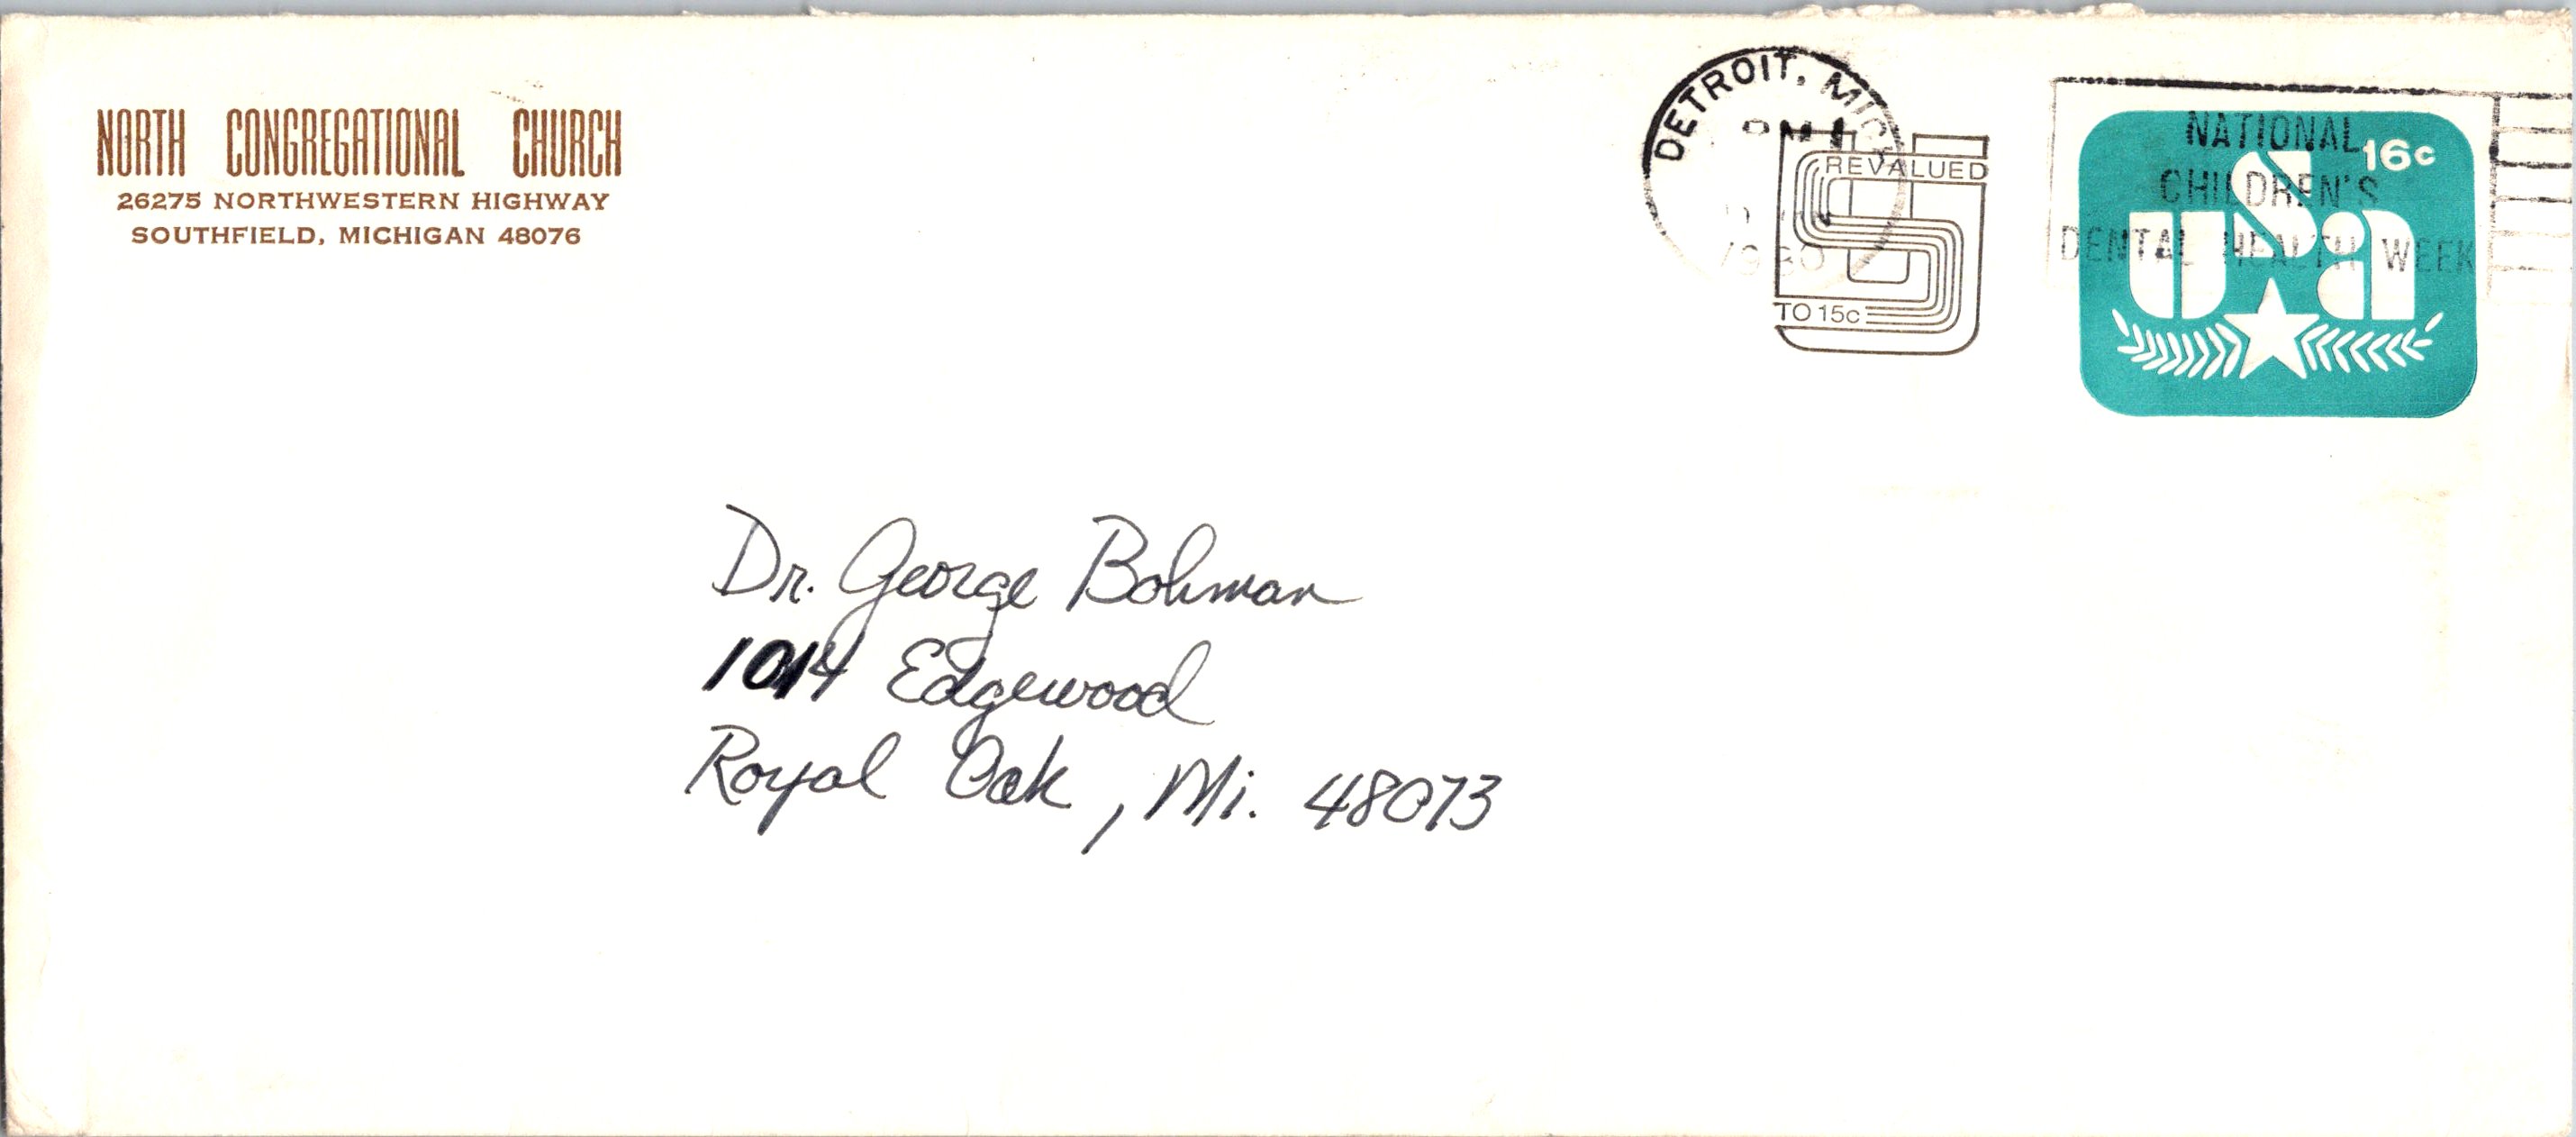 NORTH CONGREGATIONAL CHURCH
26275 NORTHWESTERN HIGHWAY
SOUTHFIELD, MICHIGAN 48076
DETROIT, MICH
PM
1980
REVALUED
TO 15c
NATIONAL
CHILDREN'S
DENTAL HEALTH WEEK
16c
usa
Dr. George Bohman
1014 Edgewood
Royal Oak, Mi. 48073